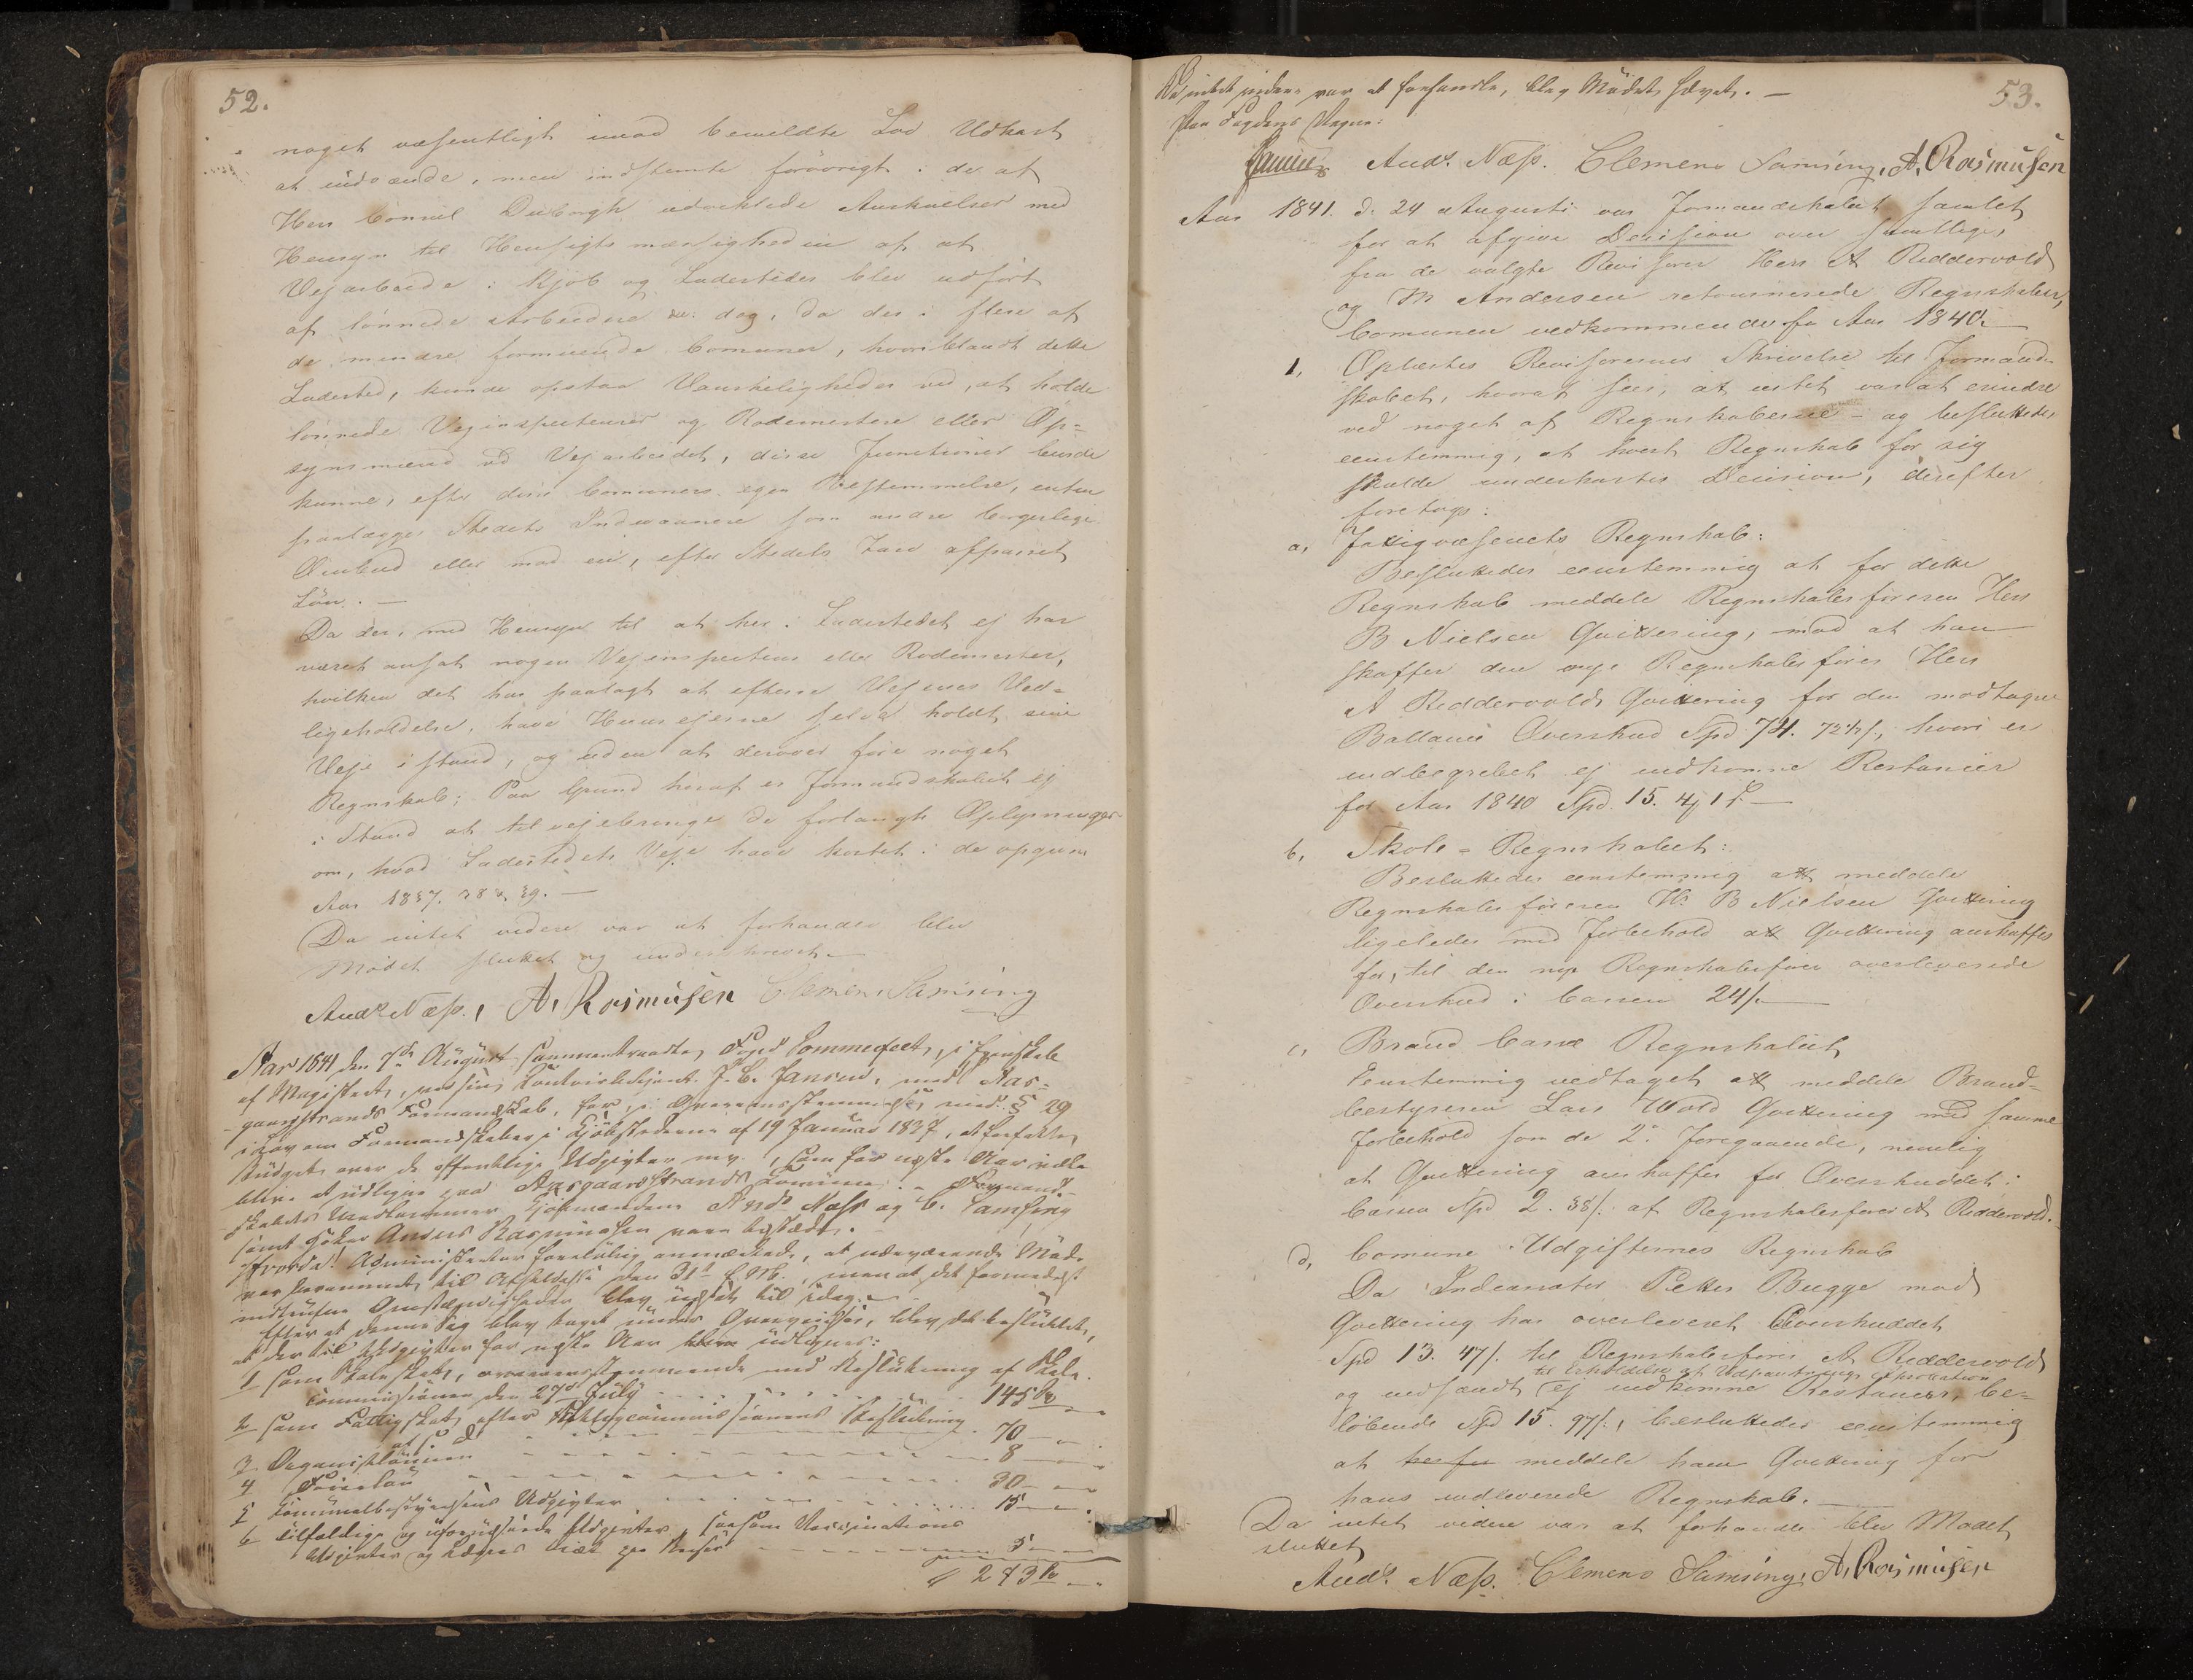 52.
noget væsentligt imod bemeldte Lov Udkast
at indvænde, men indstemte forövrigt i de af
Herr Consul Duborgh udviklede Anskuelser med
Hensyn til Hensigtsmæssigheden af at
Vejarbeide i Kjöb og Ladesteder blev udfört
af lönnede Arbeidere dog, da der i flere af
de mindre formuende Comuner, hvoriblandt dette
Ladested, kunde opstaa Vanskeligheder ved, at holde
lönnede Veginspecteurer og Rodemestere eller Op=
synsmænd ved Vejarbeidet, disse Functioner burde
kunne, efter disse Comuners egen Bestemmelse, enten
paalægges Stedets Indvaanere som andre borgerlige
Ombud eller mod en, efter Stedets Tarv afpasset
Lön. —
Da der, med Hensyn til at her i Ladestedet ej har
været ansat nogen Veginspecteur eller Rodemester,
hvilken det har paalagt at efterse Vejenes Ved=
ligeholdelse, have Huusejerne selv holdt sine
Veje i stand, og uden at derover före noget
Regnskab; Paa Grund heraf er Formandskabet ej
i Stand at tilvejebringe de forlangte Oplysninger
om, hvad Ladestedets Veje have kostet i de opgivne
Aar 1837. 38 & 39. —
Da intet videre var at forhandle blev
Mödet sluttet og underskrevet. —
Andr. Næss. , A, Rasmusen Clemens Samsing
Aar 1841 den 7de August sammentraadte, Foged Tommefeet, i Egenskab
af Magistrat, ved sin Contoirbetjent J. C. Jansen, med Aas=
gaardstrands Formandskab, for, i Overensstemmelse med § 29
i Lov om Formandskaber i Kjöbstederne af 14 Januar 1837, at forfatte
Budget over de offentlige Udgivter mv., som for næste Aar ville
blive at udligne paa Aasgaardstrands Comune. - Formand=
skabets Medlemmer Kjöbmændene Andr. Næss og C. Samsing
samt Höker Anders Rasmussen vare tilstæde.
Administrator forelöbig anmærkede, at nærværende Möde
var berammet til Afholdelse den 31te f. M., men at det formedelst
indtrufne Omstændigheder blev udsat til idag. —
Efter at denne Sag blev taget under Overveielse, blev det besluttet,
at der til Udgivter for næste Aar udlignes:
1 som Skoleskat, overensstemmende med Beslutning af Skole=
commissionen den 27de July . . . . 145 Sp
2 som Fattigskat, efter Fattigcommissionens Beslutning
af s. D. . . . . 70 — „
3 Organistlönnen . . . . 8 — „
4 . . . . 30 — „
5 Communalbestyrelsens Udgivter . . . . 15 — „
6 tilfældige og uforudseede Udgivter, saasom Vaccinations
Udgivter og . . . . 5 — „
273 Sp — „
53.
Da intet videre var at forhandle, blev Mödet hævet. —
Paa Fogdens Vegne:
Jansen Andr. Næss. Clemens Samsing, A, Rasmusen
Aar 1841. d. 24 Augusti var Formandskabet samlet
for at afgive Decision over samtlige,
fra de valgte Revisorer Herr A Reddervold
og M Andersen retournerede Regnskaber,
Comunen vedkommende for Aar 1840. —
1, Oplæstes Revisorernes Skrivelse til Formand=
skabet, hvoraf sees, at intet var at erindre
ved noget af Regnskaberne — og besluttedes
eenstemmig, at hvert Regnskab for sig
skulde underkastes Decision, derefter
foretoges:
a, Fattigvæsenets Regnskab:
Besluttedes eenstemmig at for dette
Regnskab meddele Regnskabsföreren Herr
B Nielsen Qvittering, mod at han
skaffer den nye Regnskabsförer Herr
A Reddervolds Qvittering for den modtagne
Ballance Overskud Spd 74. 72½ s, hvori er
indbegrebet ej indkomne Restancer
for Aar 1840 Spd. 15. 4 1 s. —
b, Skole = Regnskabet:
Besluttedes eenstemmig at meddele
Regnskabsföreren Hr B Nielsen Qvittering
ligeledes med Forbehold at Qvittering anskaffes
for, til den nye Regnskabsförer overleverede
Overskud i Cassen 24 s. —
c, Brand Casse Regnskabet
Eenstemmig vedtaget at meddele Brand=
bestyreren Lars Wold Qvittering med samme
forbehold som de 2de foregaaende, nemlig
at Qvittering anskaffes for Overskuddet i
Cassen Spd 2. 38 s. af Regnskabsförer A Reddervold. —
d, Comune Udgifternes Regnskab
Da Indcassator Petter Bugge mod
Qvittering har overleveret Overskuddet
Spd 13. 47 s. til Regnskabsförer A Reddervold
til Erholdelse af Udpantnings
og indsændt ej indkomne Restancer, be=
löbende Spd 15. 97 s., besluttedes eenstemmig
at herfor meddele ham Qvittering for
hans indleverede Regnskab. —
Da intet videre var at forhandle blev Mödet
sluttet
Andr. Næss. Clemens Samsing, A, Rasmusen